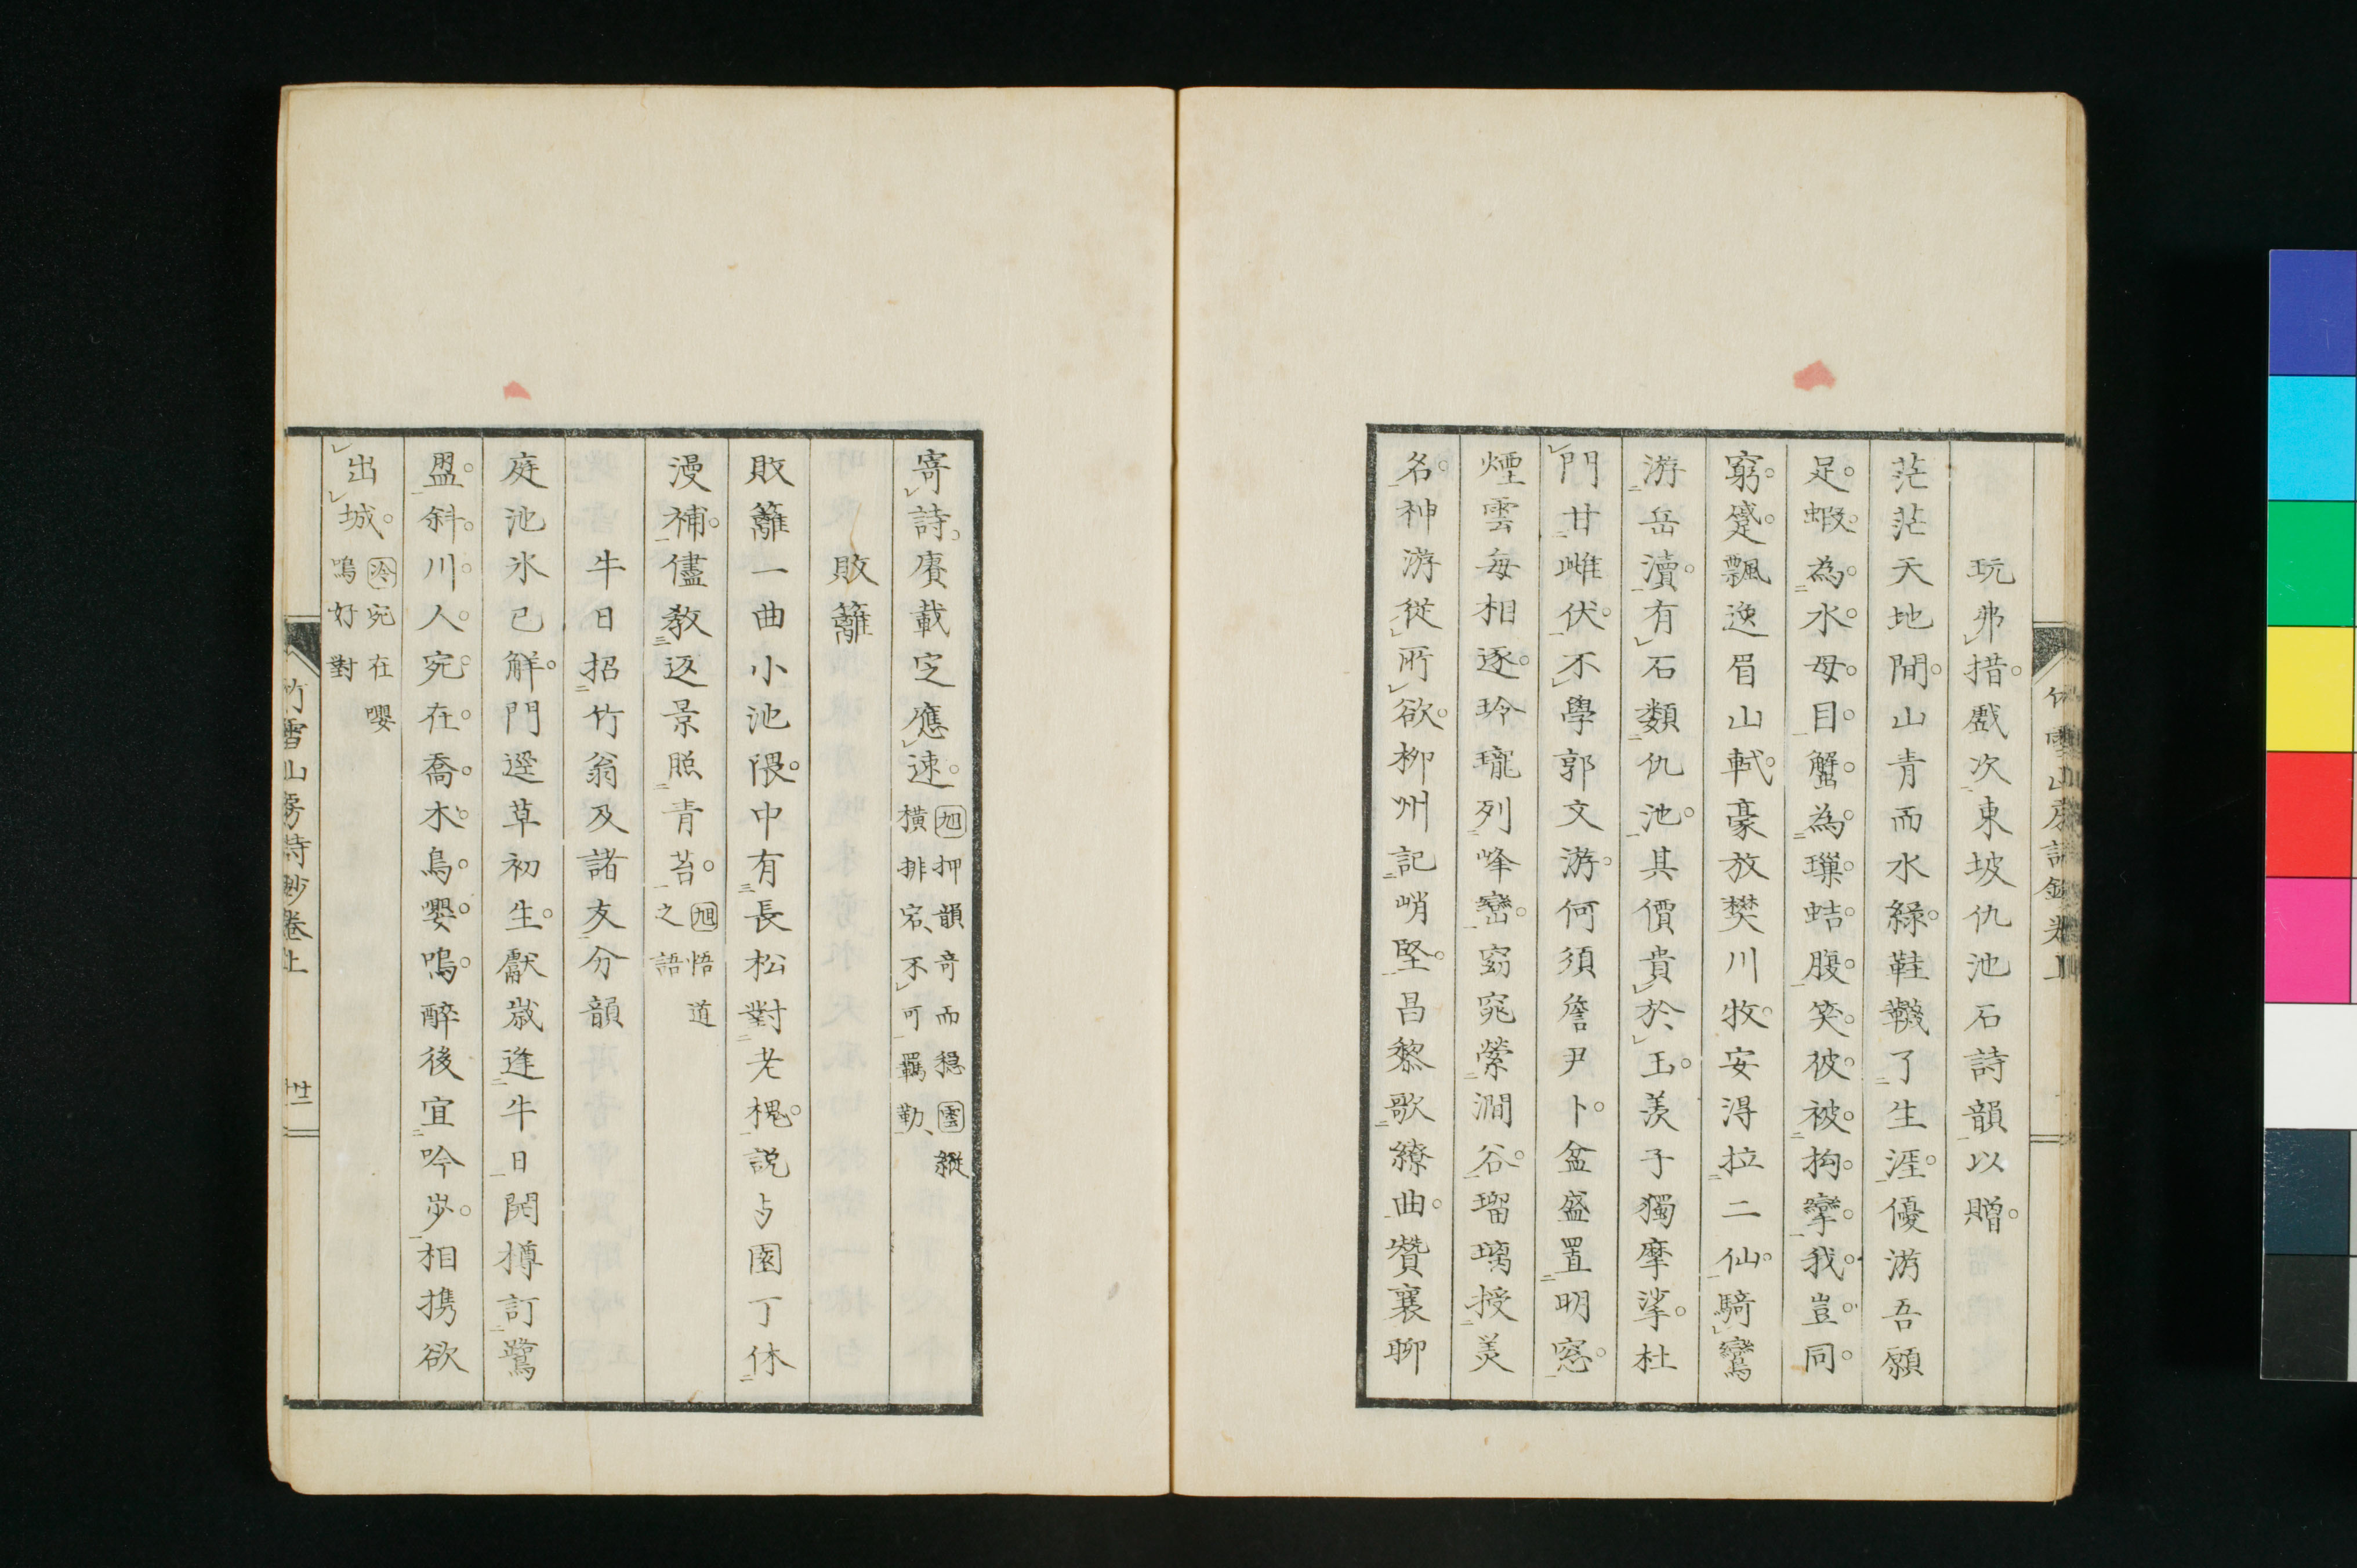 玩弗措戲次東坡仇池石詩韻以贈
茫茫天地間山青而水綠鞋韈了生涯優游吾願
足蝦為水母目蟹為璅蛣腹笑彼被拘攣我豈同
窮蹙飄逸眉山軾豪放樊川牧安得拉二仙騎鸞
游岳瀆有石類仇池其價貴於玉羨子獨摩挲杜
門甘雌伏不學郭文游何須詹尹卜盆盛置明窓
煙雲每相逐玲瓏列峰巒窈窕縈澗谷瑠璃授美
名神游從所欲柳州記峭堅昌黎歌繚曲贊襄聊
竹雪山房詩鈔卷上
寄詩賡載定應速
旭押韻奇而穩雲縱
橫排宕不可羈勒
敗籬
敗籬一曲小池隈中有長松對老槐説与園丁休
漫補儘教返景照青苔
旭悟道
之語
牛日招竹翁及諸友分韻
庭池氷已解門逕草初生獻歲逢牛日開樽訂鷺
盟斜川人宛在喬木鳥嚶鳴醉後宜吟步相携欲
出城
冷宛在嚶
鳴好對
竹雪山房詩鈔卷上
廿二